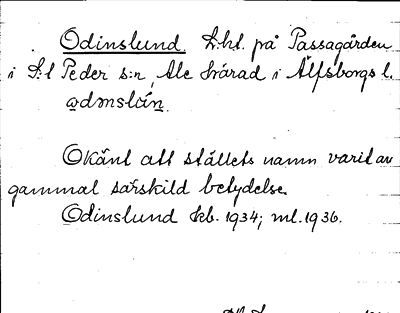 Odinslund. Lht. på Passagården
i S:t Peder s:n, Ale härad i Älfsborgs l.
odmslán.
Okänt att ställets namn varit av
gammal särskild betydelse.
Odinslund kb. 1934; ml. 1936.